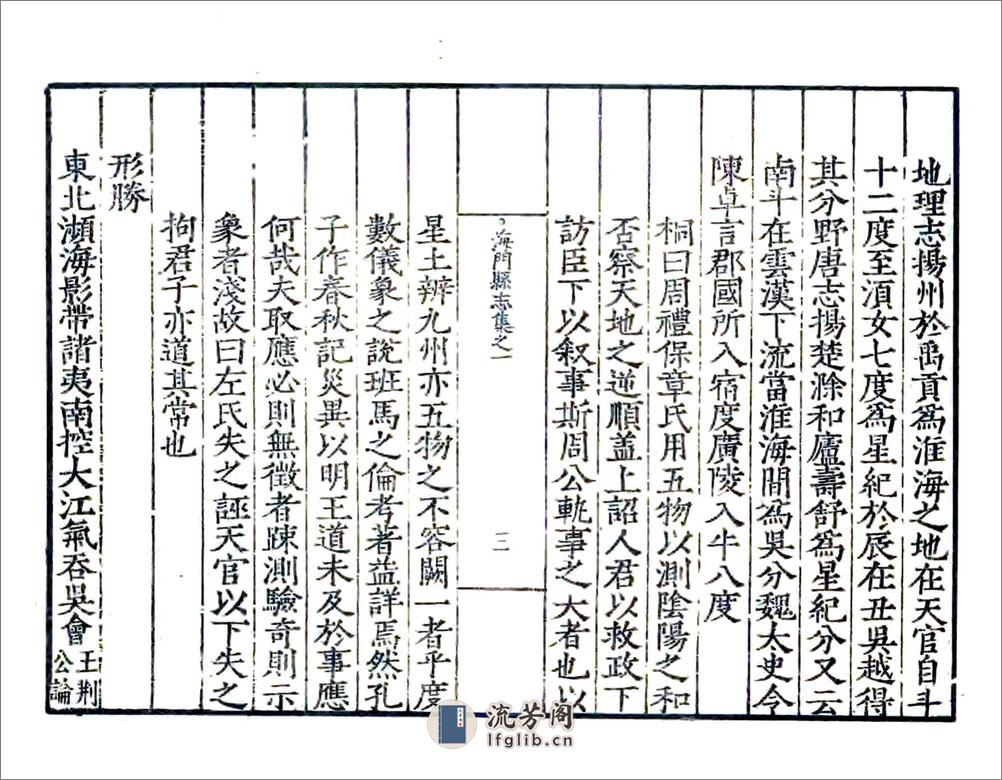 地理志揚州於禹貢爲淮海之地在天官自斗
十二度至湏女七度爲星紀於辰在丑吳越得
其分野唐志揚楚滁和廬壽舒爲星紀分又云
南斗在雲漢下流當淮海間爲吳分魏太史令
陳卓言郡國所入宿度廣陵入牛八度
桐曰周禮保章氏用五物以測陰陽之和
否察天地之逆順盖上詔人君以救政下
訪臣下以叙事斯周公軌事之大者也以
海門縣志集之一
三
星土辨九州亦五物之不容闕一者乎度
數儀象之說班馬之倫考著益詳焉然孔
子作春秋記災異以明王道未及於事應
何哉夫取應必則無徵者踈測驗奇則示
象者淺故曰左氏失之誣天官以下失之
拘君子亦道其常也
形勝
東北瀕海影帶諸夷南控大江氣吞吳會王荆公論
流芳阁
lfglib.cn